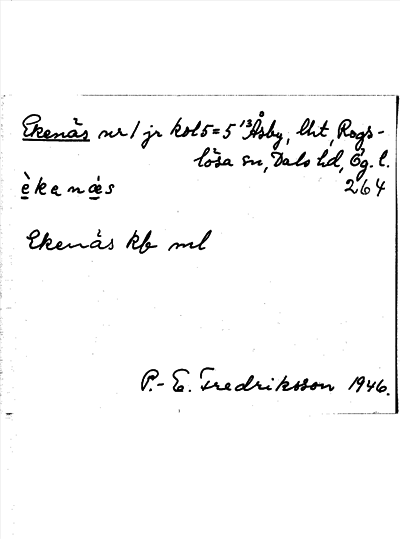 Ekenäs nr 1 jr kol 5 = 5¹³ Åsby, lht, Rogs-
lösa sn, Dals hd, Ög. l.
èkanæs 264
Ekenäs kb ml
P.-E. Fredriksson 1946.